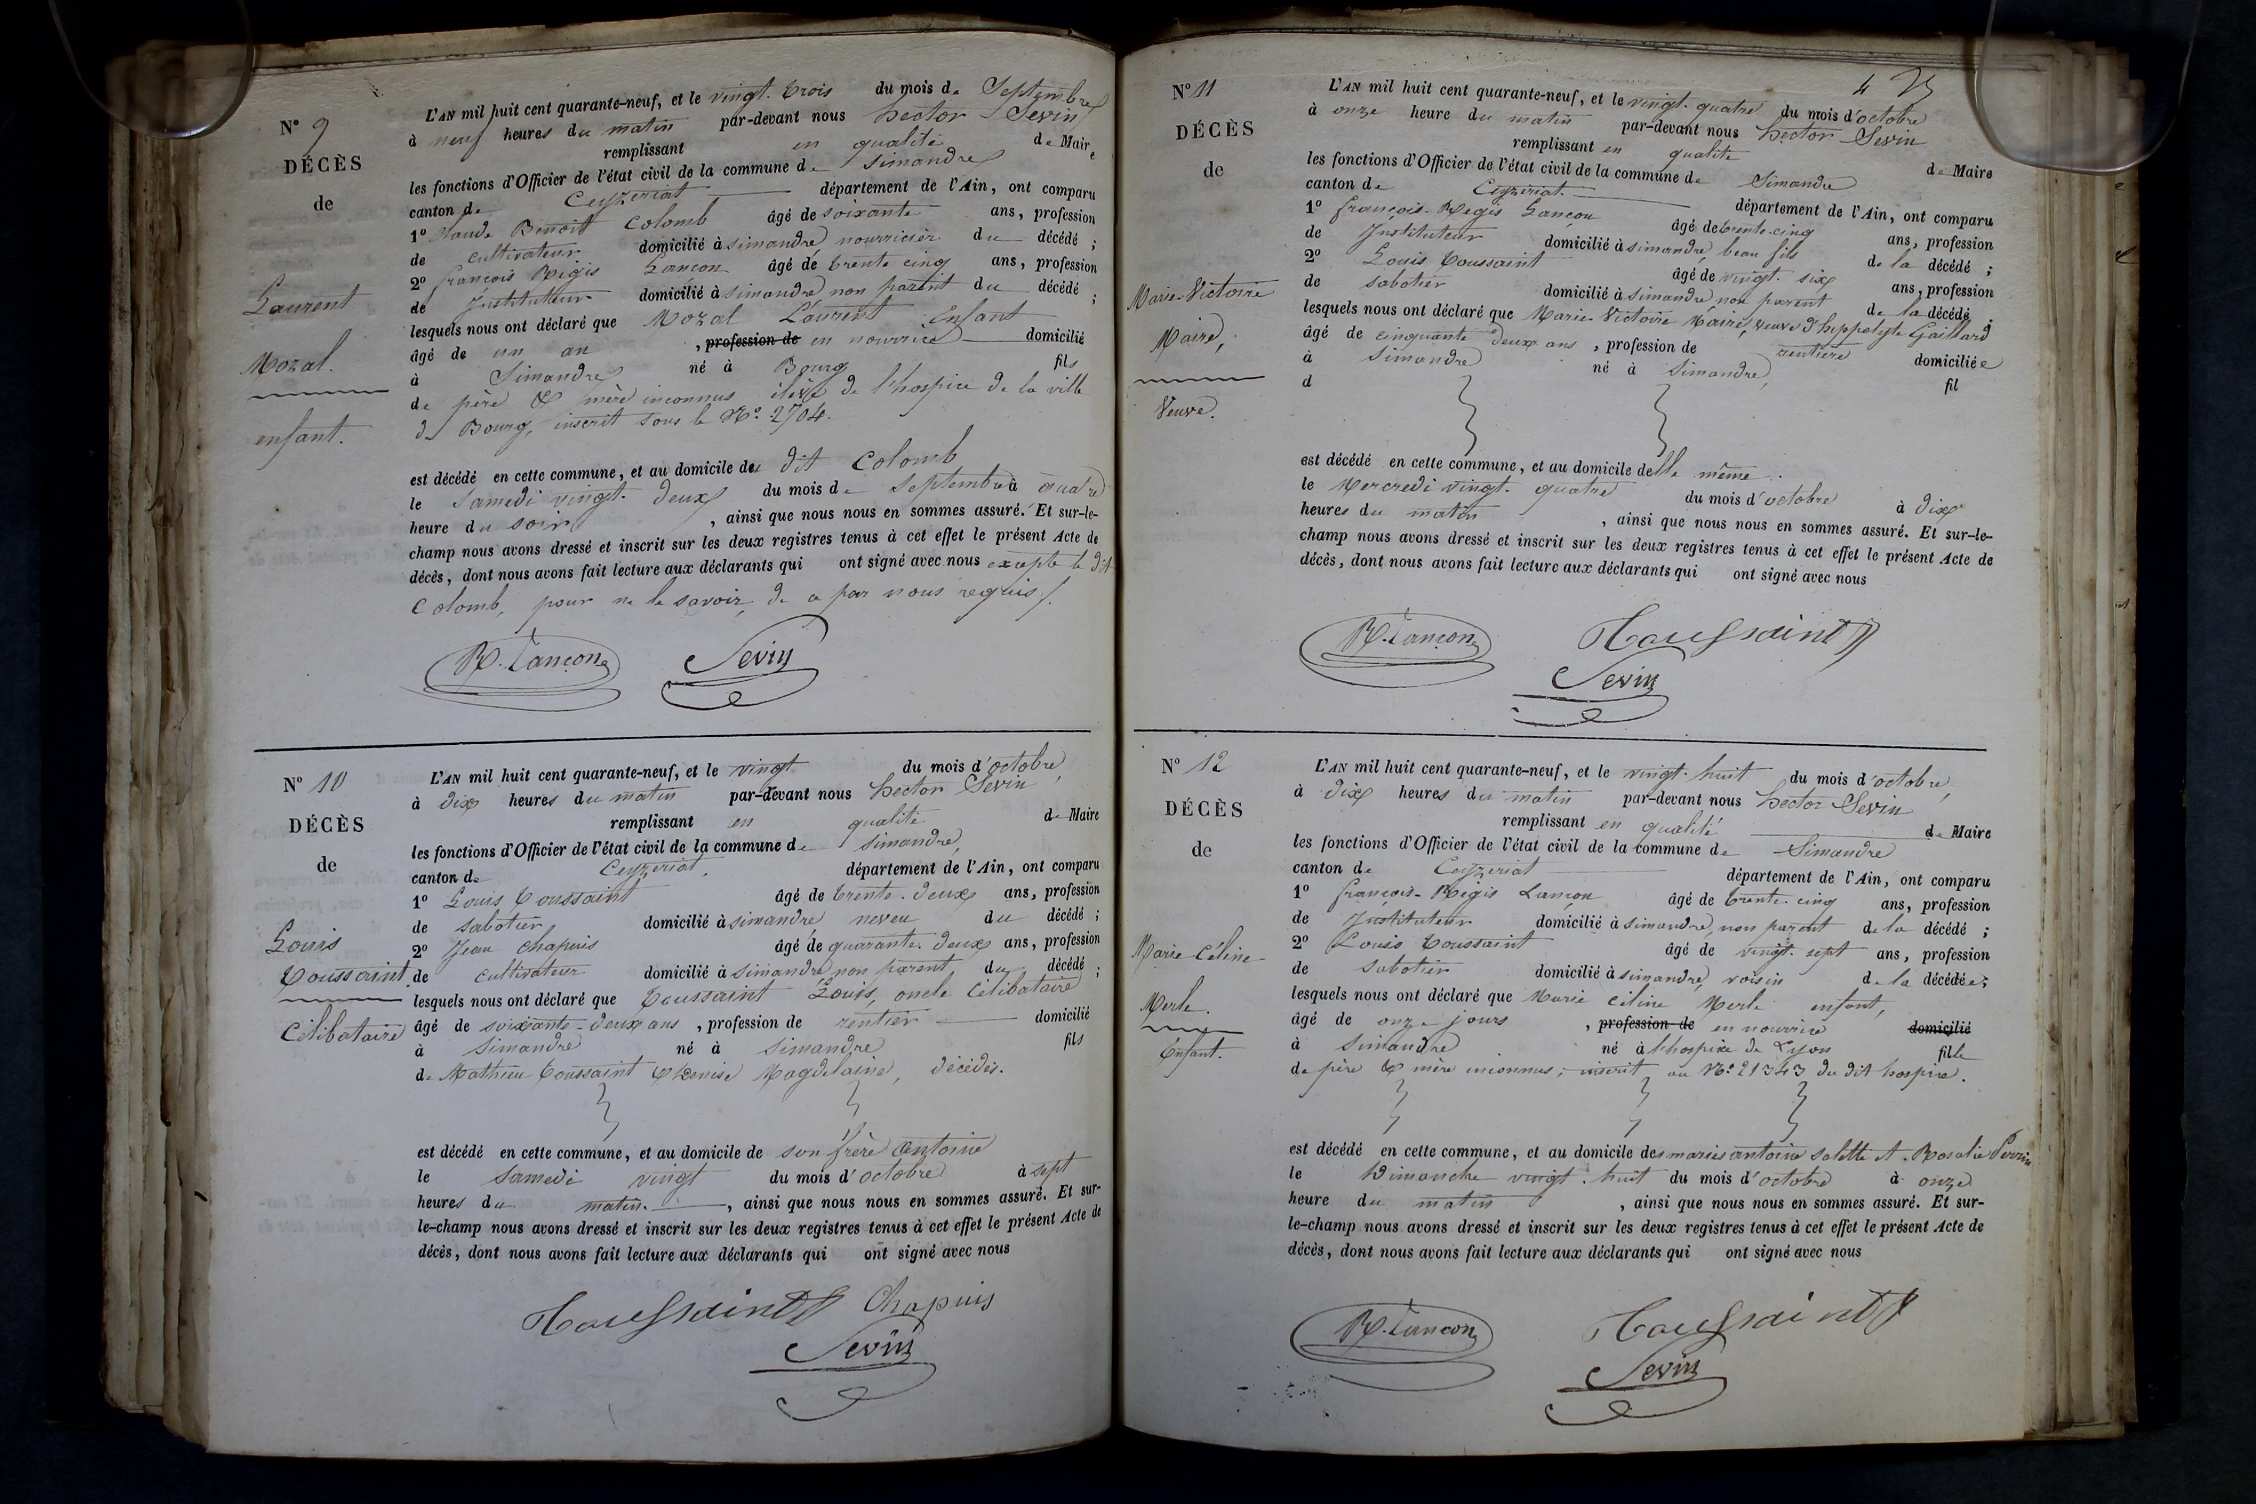 N° 9
DÉCÈS
de
Laurent
Mozal.
enfant.
L'AN mil huit cent quarante-neuf, et le vingt-trois du mois de Septembre
à neuf heures du matin par-devant nous hector Sevin
remplissant en qualité de Maire
les fonctions d'Officier de l'état civil de la commune de Simandre
canton de Ceyzeriat département de l'Ain, ont comparu
1° Claude Benoit Colomb âgé de soixante ans, profession
de cultivateur domicilié à Simandre, nourricier du décédé ;
2° françois Régis Lançon âgé de trente cinq ans, profession
de Instituteur domicilié à Simandre non parent du décédé ;
lesquels nous ont déclaré que Mozal Laurent Enfant
âgé de un an , profession de en nourrice domicilié
à Simandre né à Bourg fils
de père & mère inconnus élève de l'hospice de la ville
de Bourg, inscrit sous le N° 2704.
est décédé en cette commune, et au domicile du dit Colomb
le Samedi vingt-deux du mois de Septembre à quatre
heure du soir , ainsi que nous nous en sommes assuré. Et sur-le-
champ nous avons dressé et inscrit sur les deux registres tenus à cet effet le présent Acte de
décès, dont nous avons fait lecture aux déclarants qui ont signé avec nous excepté le dit
Colomb, pour ne le savoir, de ce par nous requis.
R. Lançon Sevin
N° 10
DÉCÈS
de
Louis
Toussaint
Célibataire
L'AN mil huit cent quarante-neuf, et le vingt du mois d'octobre,
à dix heures du matin par-devant nous hector Sevin
remplissant en qualité de Maire
les fonctions d'Officier de l'état civil de la commune de Simandre,
canton de Ceyzeriat, département de l'Ain, ont comparu
1° Louis Toussaint âgé de trente-deux ans, profession
de sabotier domicilié à Simandre neveu du décédé ;
2° Jean Chapuis âgé de quarante-deux ans, profession
de cultivateur domicilié à Simandre non parent du décédé ;
lesquels nous ont déclaré que Toussaint Louis, oncle Célibataire
âgé de soixante-deux ans , profession de rentier domicilié
à Simandre né à Simandre fils
de Mathieu Toussaint & Denise Magdelaine, décédés.
est décédé en cette commune, et au domicile de son frère Antoine
le Samedi vingt du mois d'octobre à sept
heures du matin. , ainsi que nous nous en sommes assuré. Et sur-
le-champ nous avons dressé et inscrit sur les deux registres tenus à cet effet le présent Acte de
décès, dont nous avons fait lecture aux déclarants qui ont signé avec nous
Toussaint Chapuis
Sevin
N° 11
DÉCÈS
de
Marie-Victoire
Maire,
Veuve.
L'AN mil huit cent quarante-neuf, et le vingt-quatre du mois d'octobre
à onze heure du matin par-devant nous hector Sevin
remplissant en qualité de Maire
les fonctions d'Officier de l'état civil de la commune de Simandre
canton de Ceyzeriat. département de l'Ain, ont comparu
1° françois-Régis Lançon âgé de trente-cinq ans, profession
de Instituteur domicilié à Simandre, beau fils de la décédé ;
2° Louis Toussaint âgé de vingt-six ans, profession
de sabotier domicilié à Simandre, non parent de la décédé ;
lesquels nous ont déclaré que Marie-Victoire Maire, veuve d'hippolyte Gaillard
âgé de cinquante deux ans , profession de rentière domiciliée
à Simandre né à Simandre, fil
d
est décédé en cette commune, et au domicile delle même.
le Mercredi vingt-quatre du mois d'octobre à dix
heures du matin , ainsi que nous nous en sommes assuré. Et sur-le-
champ nous avons dressé et inscrit sur les deux registres tenus à cet effet le présent Acte de
décès, dont nous avons fait lecture aux déclarants qui ont signé avec nous
R. Lançon Toussaint
Sevin
N° 12
DÉCÈS
de
Marie-Céline
Merle.
Enfant.
L'AN mil huit cent quarante-neuf, et le vingt-huit du mois d'octobre,
à dix heures du matin par-devant nous hector Sevin
remplissant en qualité de Maire
les fonctions d'Officier de l'état civil de la commune de Simandre
canton de Ceyzeriat département de l'Ain, ont comparu
1° françois-Régis Lançon âgé de trente-cinq ans, profession
de Instituteur domicilié à Simandre, non parent de la décédé ;
2° Louis Toussaint âgé de vingt-sept ans, profession
de sabotier domicilié à Simandre, voisin de la décédée ;
lesquels nous ont déclaré que Marie Céline Merle enfant,
âgé de onze jours , profession de en nourrice domicilié
à Simandre né à l'hospice de Lyon fille
de père & mère inconnus ; inscrit au N° 21343 du dit hospice.
est décédé en cette commune, et au domicile des mariés antoine Salette et Rosalie Perrin
le Dimanche vingt-huit du mois d'octobre à onze
heure du matin , ainsi que nous nous en sommes assuré. Et sur-
le-champ nous avons dressé et inscrit sur les deux registres tenus à cet effet le présent Acte de
décès, dont nous avons fait lecture aux déclarants qui ont signé avec nous
R. Lançon Toussaint
Sevin